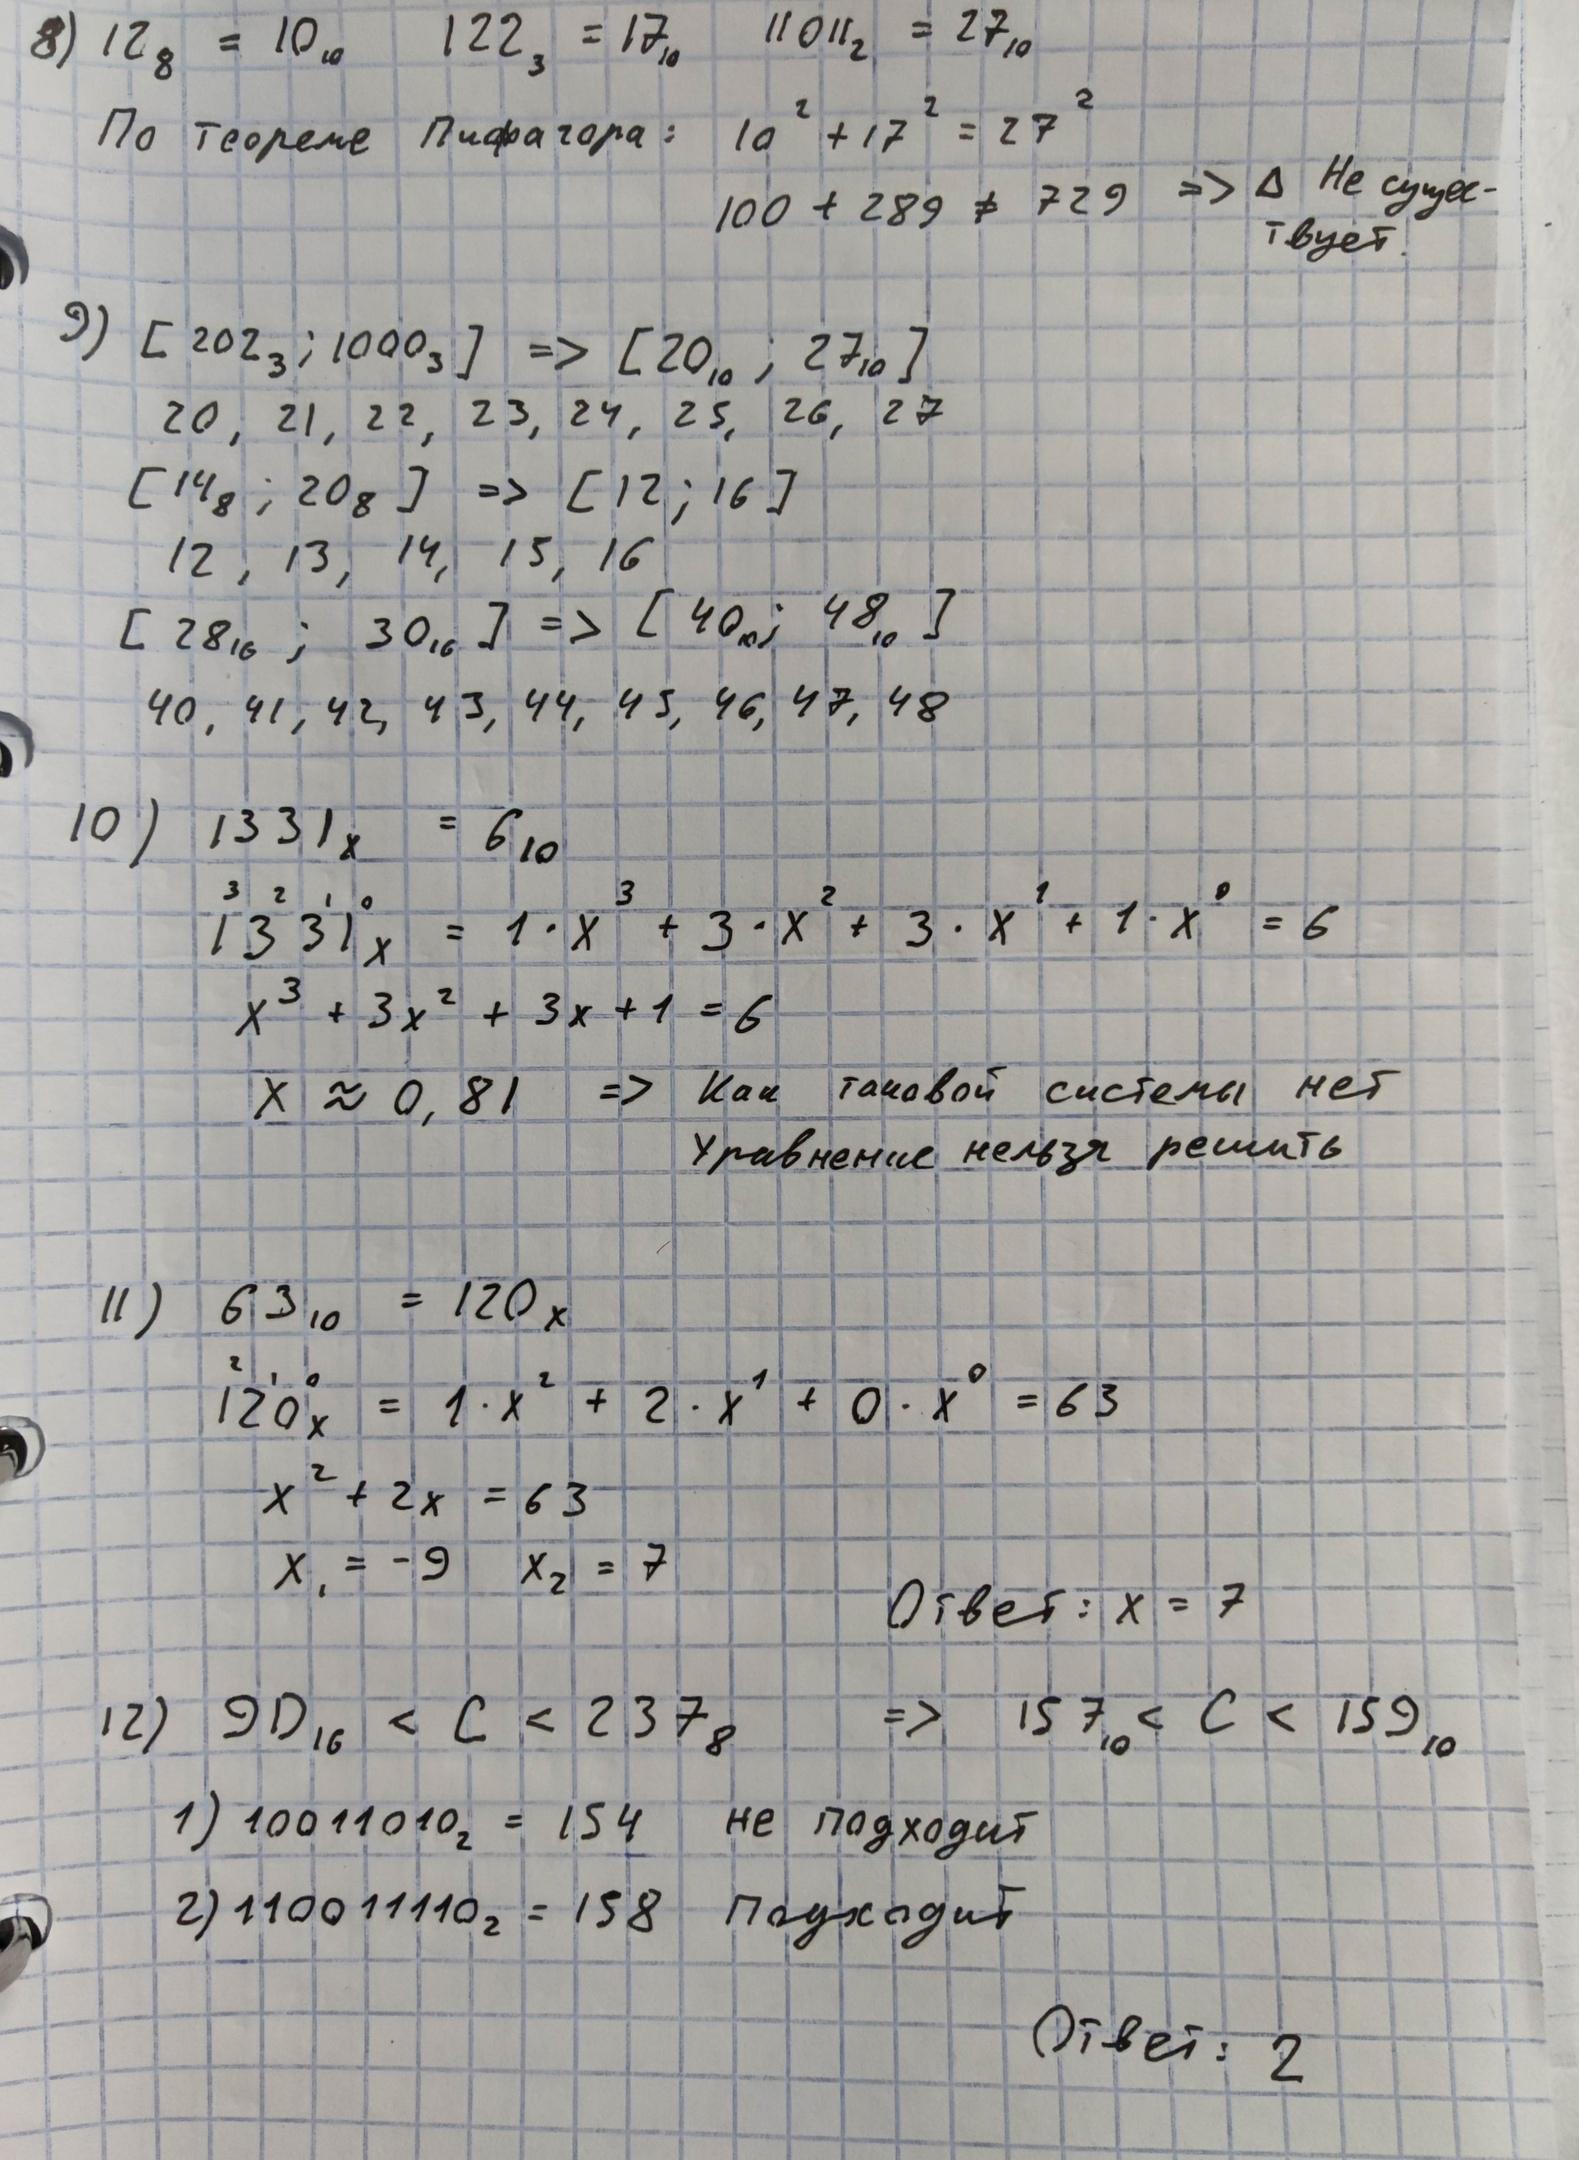 8) 12₈ = 10₁₀ 122₃ = 17₁₀ 11011₂ = 27₁₀
По теореме Пифагора: 10² + 17² = 27²
100 + 289 ≠ 729 => Δ Не сущес-
твует.
9) [202₃ ; 1000₃] => [20₁₀ ; 27₁₀]
20, 21, 22, 23, 24, 25, 26, 27
[14₈ ; 20₈] => [12 ; 16]
12, 13, 14, 15, 16
[28₁₆ ; 30₁₆] => [40₁₀ ; 48₁₀]
40, 41, 42, 43, 44, 45, 46, 47, 48
10) 1331ₓ = 6₁₀
3 2 1 0
1331ₓ = 1·x³ + 3·x² + 3·x¹ + 1·x⁰ = 6
x³ + 3x² + 3x + 1 = 6
x ≈ 0,81 => Как таковой системы нет
Уравнение нельзя решить
11) 63₁₀ = 120ₓ
2 1 0
120ₓ = 1·x² + 2·x¹ + 0·x⁰ = 63
x² + 2x = 63
x₁ = -9 x₂ = 7
Ответ: x = 7
12) 9D₁₆ < C < 237₈ => 157₁₀ < C < 159₁₀
1) 10011010₂ = 154 не подходит
2) 110011110₂ = 158 Подходит
Ответ: 2